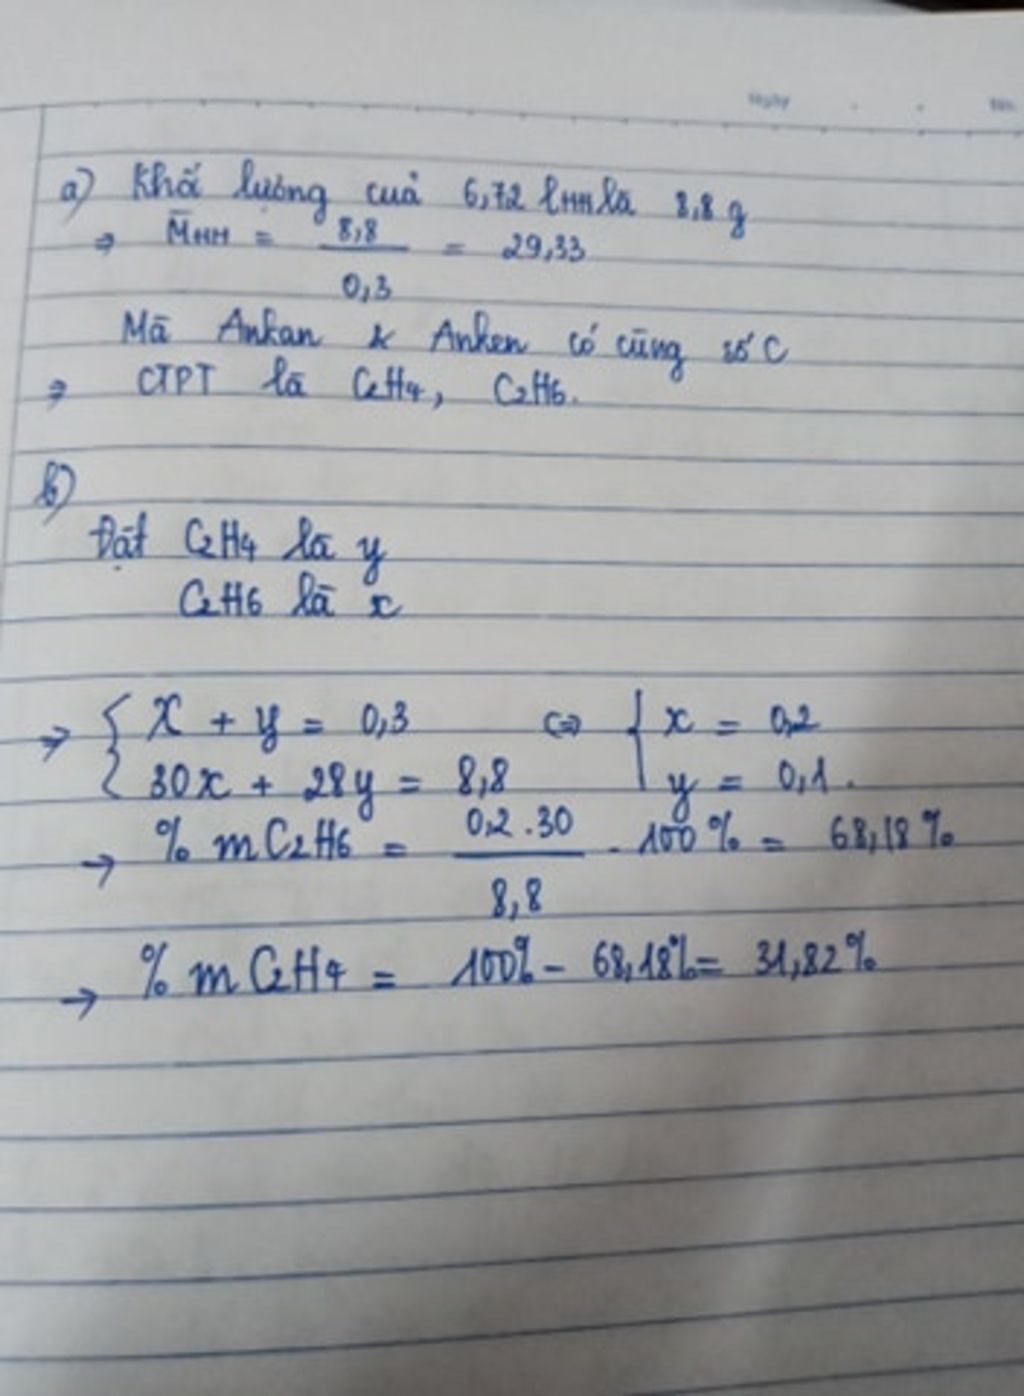 Ngày
a) Khối lượng của 6,72 l HH là 8,8 g
⇒ M̅HH = 8,8 / 0,3 = 29,33
Mà Ankan & Anken có cùng số C
⇒ CTPT là C₂H₄, C₂H₆.
b)
Đặt C₂H₄ là y
C₂H₆ là x
→ { x + y = 0,3 ⇔ { x = 0,2
30x + 28y = 8,8 y = 0,1.
→ % m C₂H₆ = 0,2 . 30 / 8,8 . 100% = 68,18%
→ % m C₂H₄ = 100% - 68,18% = 31,82%